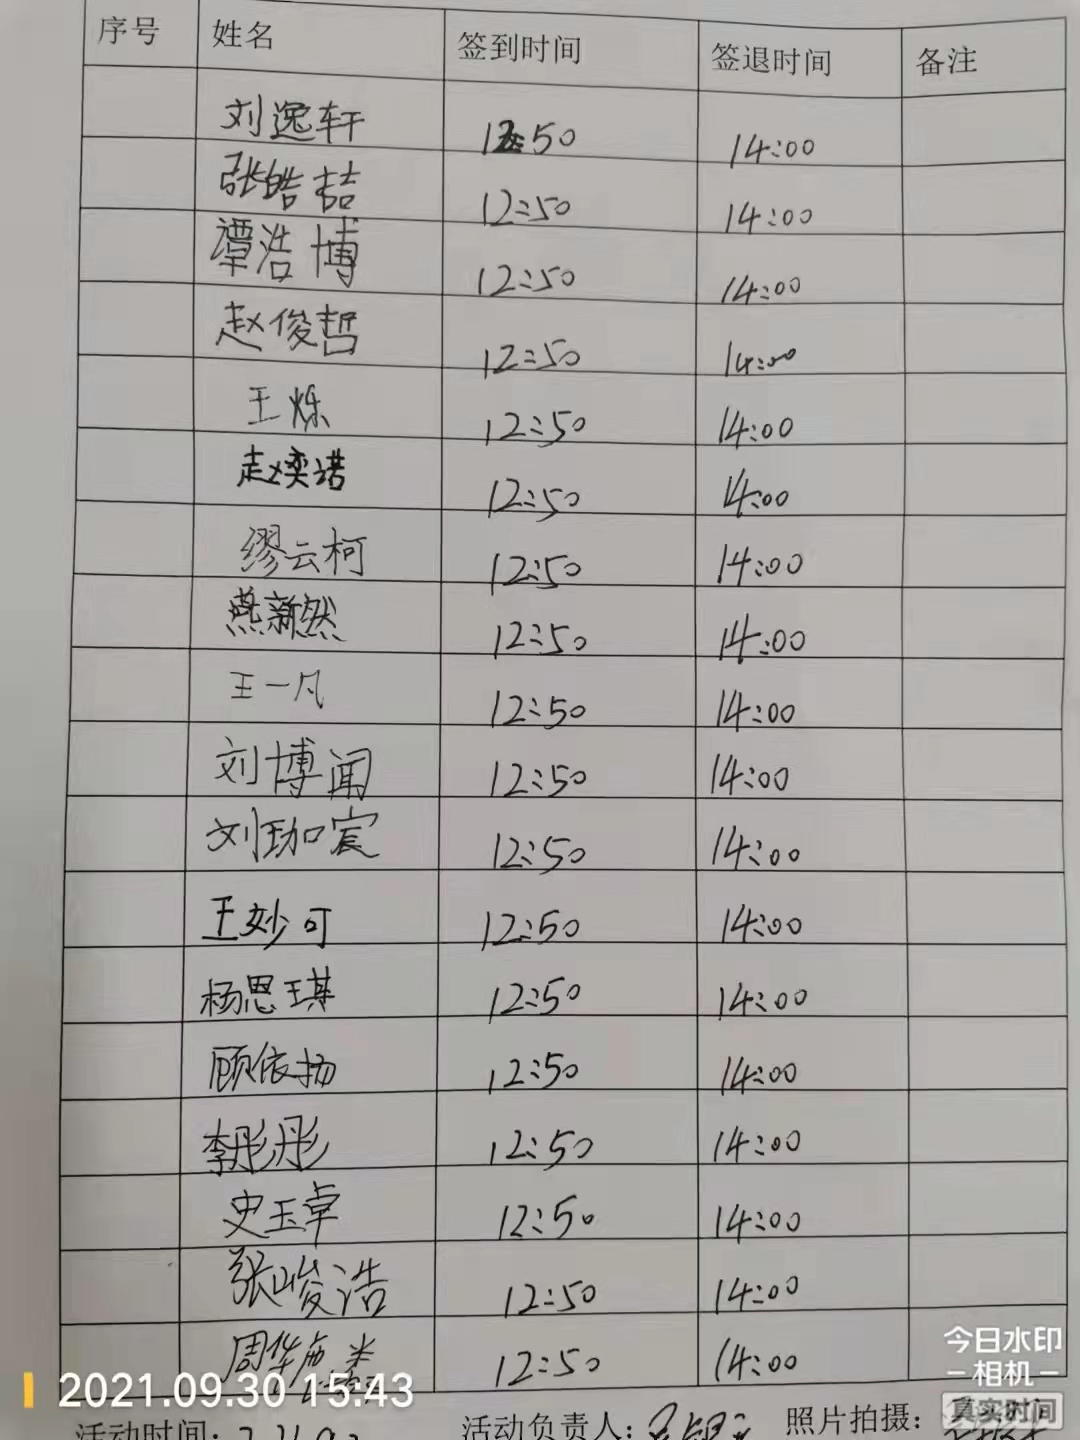 序号 姓名 签到时间 签退时间 备注
刘逸轩 12:50 14:00
张皓喆 12:50 14:00
谭浩博 12:50 14:00
赵俊哲 12:50 14:00
王烁 12:50 14:00
赵奕诺 12:50 14:00
缪云柯 12:50 14:00
燕新然 12:50 14:00
王一凡 12:50 14:00
刘博闻 12:50 14:00
刘珈宸 12:50 14:00
王妙可 12:50 14:00
杨思琪 12:50 14:00
顾依扬 12:50 14:00
李彤彤 12:50 14:00
史玉卓 12:50 14:00
张峻浩 12:50 14:00
周华 12:50 14:00
今日水印
相机
真实时间
2021.09.30 15:43
活动时间: 活动负责人: 照片拍摄: